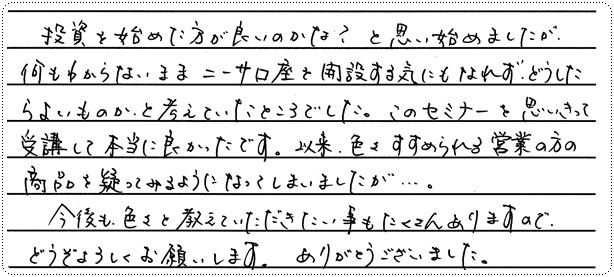 投資を始めた方が良いのかな？と思い始めましたが、
何もわからないまま ニーサ口座を開設する気にもなれず、どうした
らよいものか、と考えていたところでした。このセミナーを思いきって
受講して本当に良かったです。以来、色々すすめられる営業の方の
商品を疑ってみるようになってしまいましたが…。
今後も、色々と教えていただきたい事もたくさんありますので、
どうぞよろしくお願いします。 ありがとうございました。